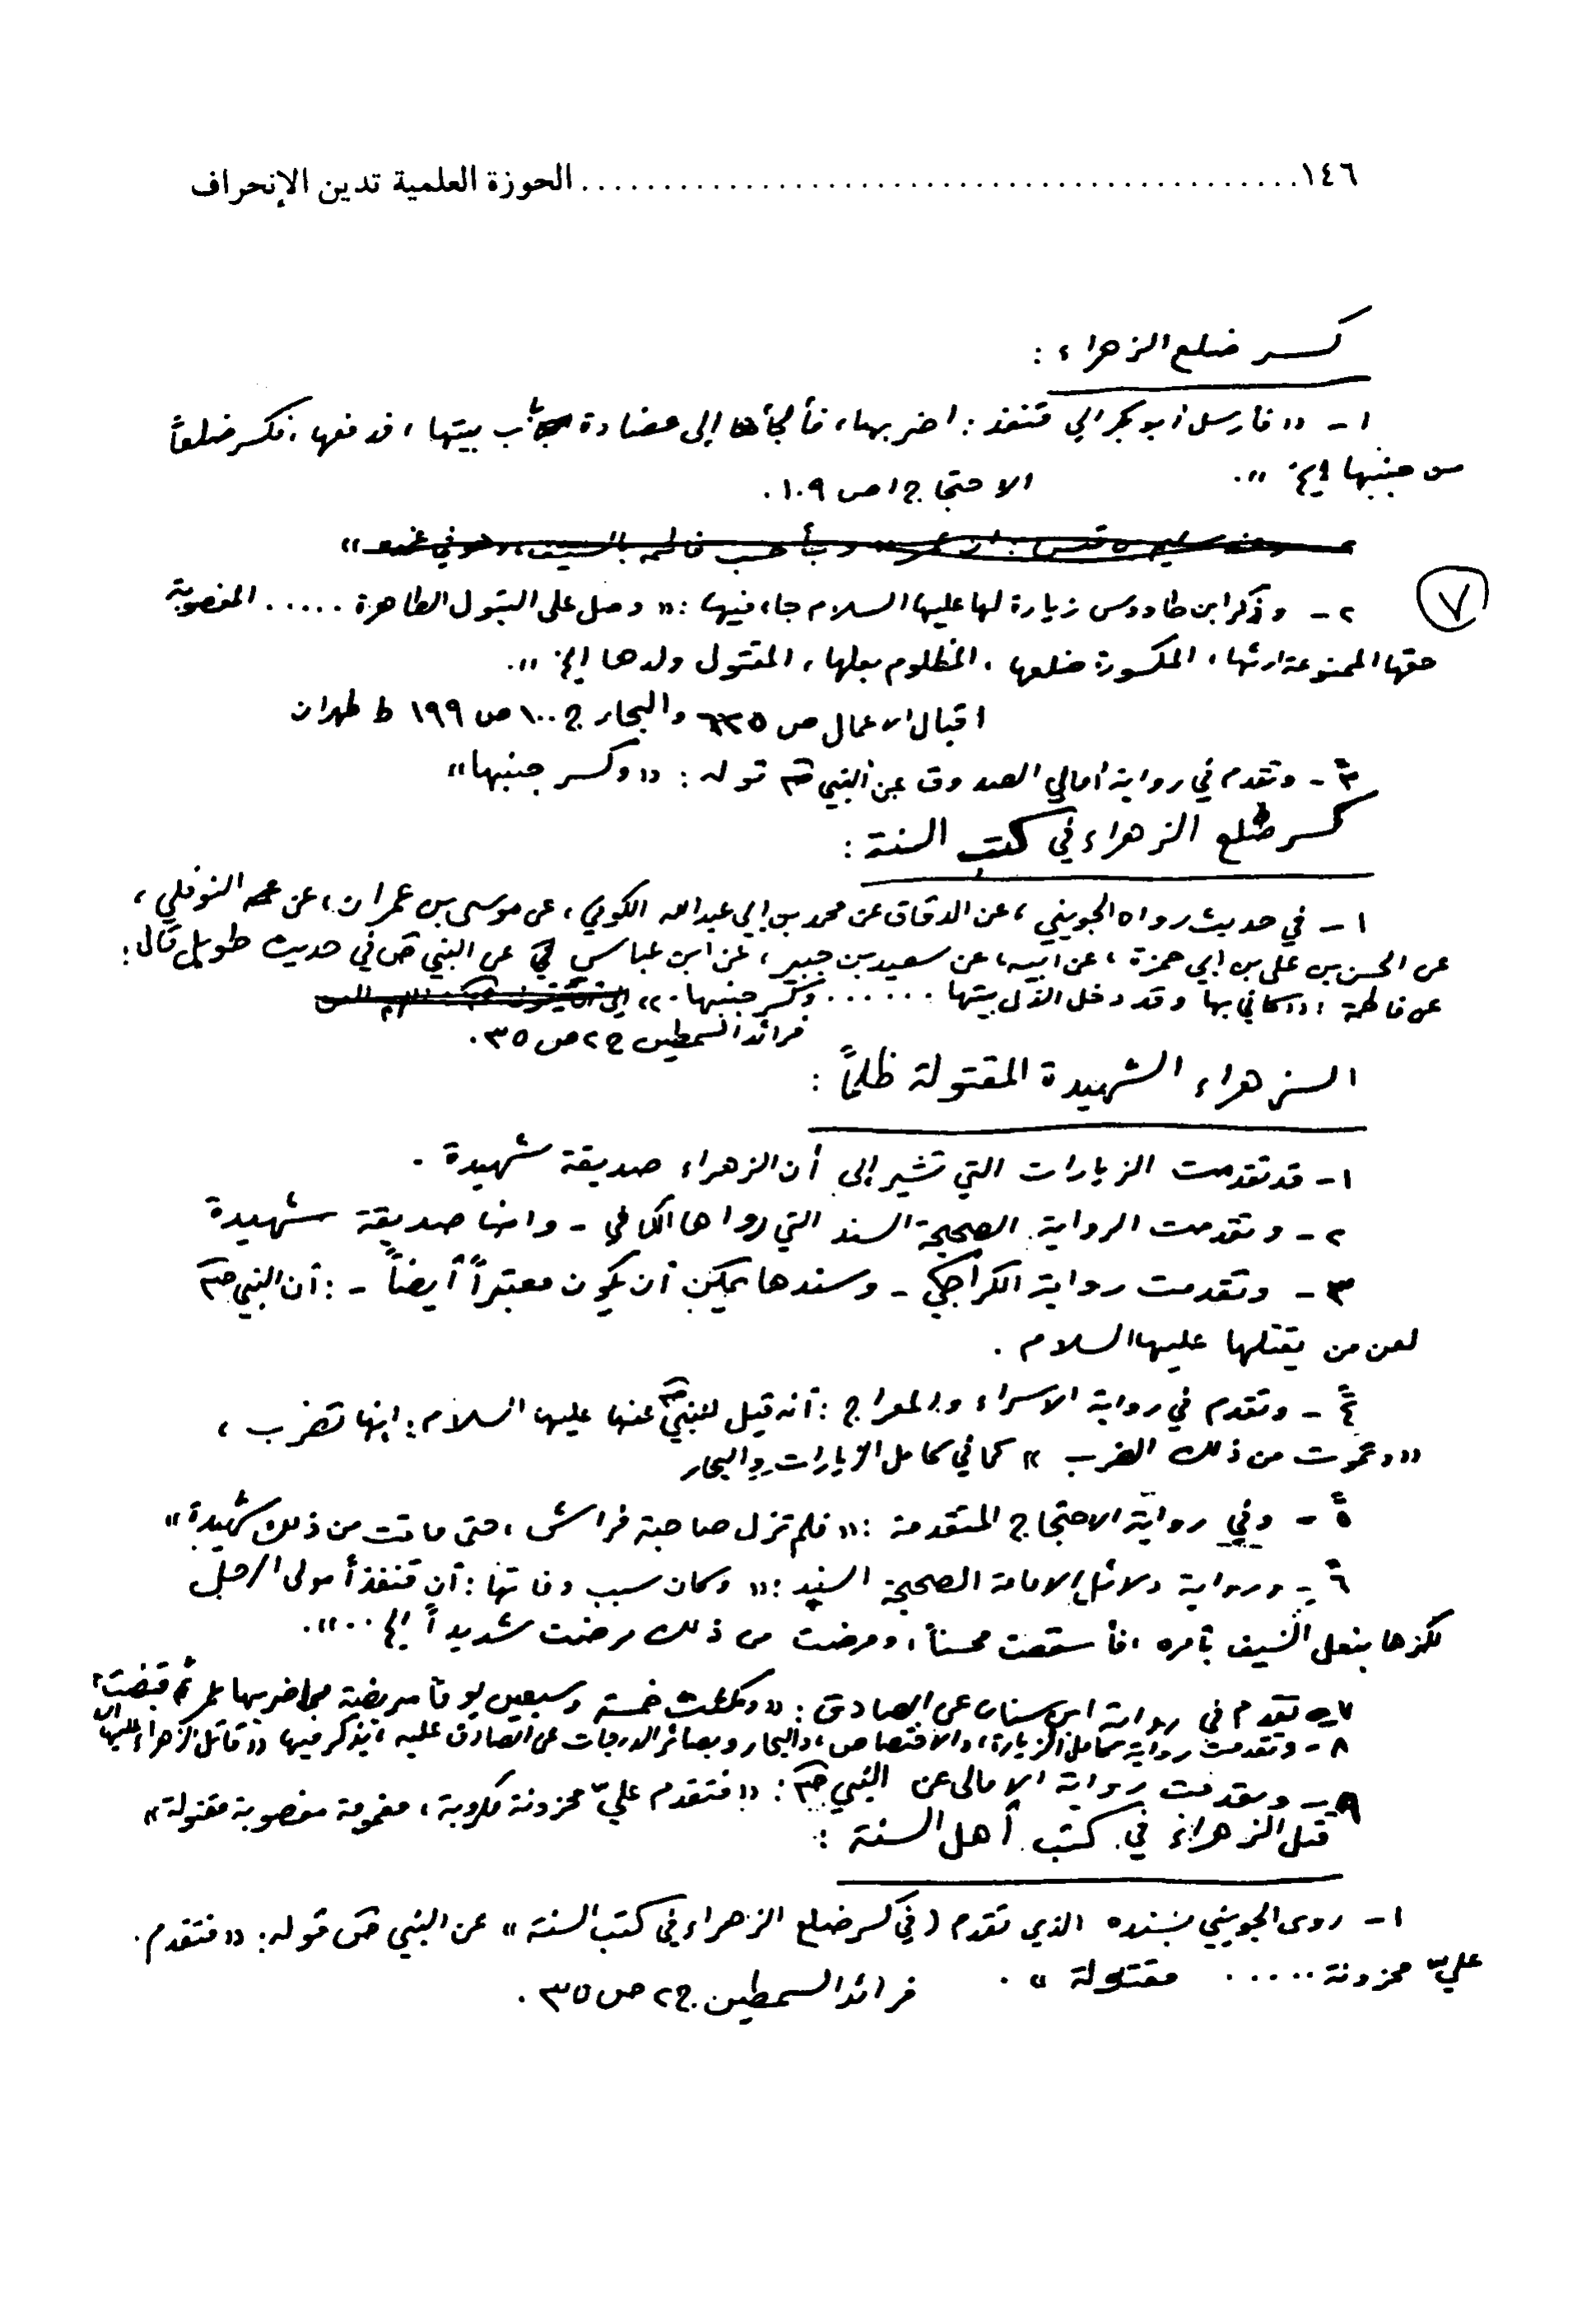 ١٤٦ ........................................ الحوزة العلمية تدين الإنحراف
كسر ضلع الزهراء :
١ - « فأرسل أبو بكر الى قنفذ : اضربها ، فألجأها إلى عضادة باب بيتها ، فدفعها ، فكسر ضلعاً
من جنبها إلخ ».    الاحتجاج ١ ص ١٠٩ .
٧
٢ - وذكر ابن طاووس زيارة لها عليها السلام جاء فيها : « وصل على البتول الطاهرة ..... المغصوبة
حقها الممنوعة ارثها ، المكسورة ضلعها ، المظلوم بعلها ، المقتول ولدها إلخ ».
اقبال الاعمال ص ٦٢٥ والبحار ج ١٠٠ ص ١٩٩ ط طهران
٣ - وتقدم في رواية أمالي الصدوق عن النبي ص قوله : « وكسر جنبها »
كسر ضلع الزهراء في كتب السنة :
١ - في حديث رواه الجويني ، عن الدقاق عن محمد بن ابي عبدالله الكوفي ، عن موسى بن عمران ، عن عمه النوفلي ،
عن الحسن بن علي بن ابي حمزة ، عن ابيه ، عن سعيد بن جبير ، عن ابن عباس عن النبي ص في حديث طويل قال :
عن فاطمة : « كاني بها وقد دخل الذل بيتها ...... وكسر جنبها . »
فرائد السمطين ج ٢ ص ٣٥ .
الزهراء الشهيدة المقتولة ظلماً :
١ - قد تقدمت الزيارات التي تشير إلى أن الزهراء صديقة شهيدة .
٢ - وتقدمت الرواية الصحيحة السند التي رواها الكافي - وانها صديقة شهيدة
٣ - وتقدمت رواية الكراجكي - وسندها يمكن أن يكون معتبراً أيضاً - : أن النبي ص
لعن من يقتلها عليها السلام .
٤ - وتقدم في رواية الاسراء والمعراج : أنه قيل للنبي ص عنها عليها السلام : إنها تضرب ،
« وتموت من ذلك الضرب » كما في كامل الزيارات والبحار
٥ - وفي رواية الاحتجاج المتقدمة : « فلم تزل صاحبة فراش ، حتى ماتت من ذلك شهيدة »
٦ - ورواية دلائل الامامة الصحيحة السند : « وكان سبب وفاتها : أن قنفذاً مولى الرجل
لكزها بنعل السيف بأمره ، فأسقطت محسناً ، ومرضت من ذلك مرضت شديداً إلخ .. ».
٧ - تقدم في رواية ابن سنان عن الصادق : « ومكثت خمسة وسبعين يوماً مريضة مما ضربها عمر ثم قبضت »
٨ - وتقدمت رواية كامل الزيارة ، والاختصاص ، والبحار وبصائر الدرجات عن الصادق عليه ، يذكر فيها « قاتل الزهراء عليها
٩ - وتقدمت رواية الامالي عن النبي ص : « فتقدم عليّ محزونة مكروبة ، مغمومة مغصوبة مقتولة »
قتل الزهراء في كتب أهل السنة :
١ - روى الجويني بسنده الذي تقدم ( في كسر ضلع الزهراء في كتب السنة » عن النبي ص قوله : « فتقدم
عليّ محزونة ..... مقتولة » .    فرائد السمطين ج ٢ ص ٣٥ .